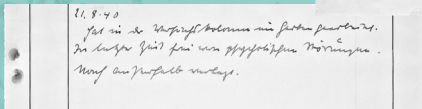 21.8.40
Hat in der Versuchskolonne im Garten gearbeitet.
In letzter Zeit frei von psychotischen Störungen.
Nach ausserhalb verlegt.